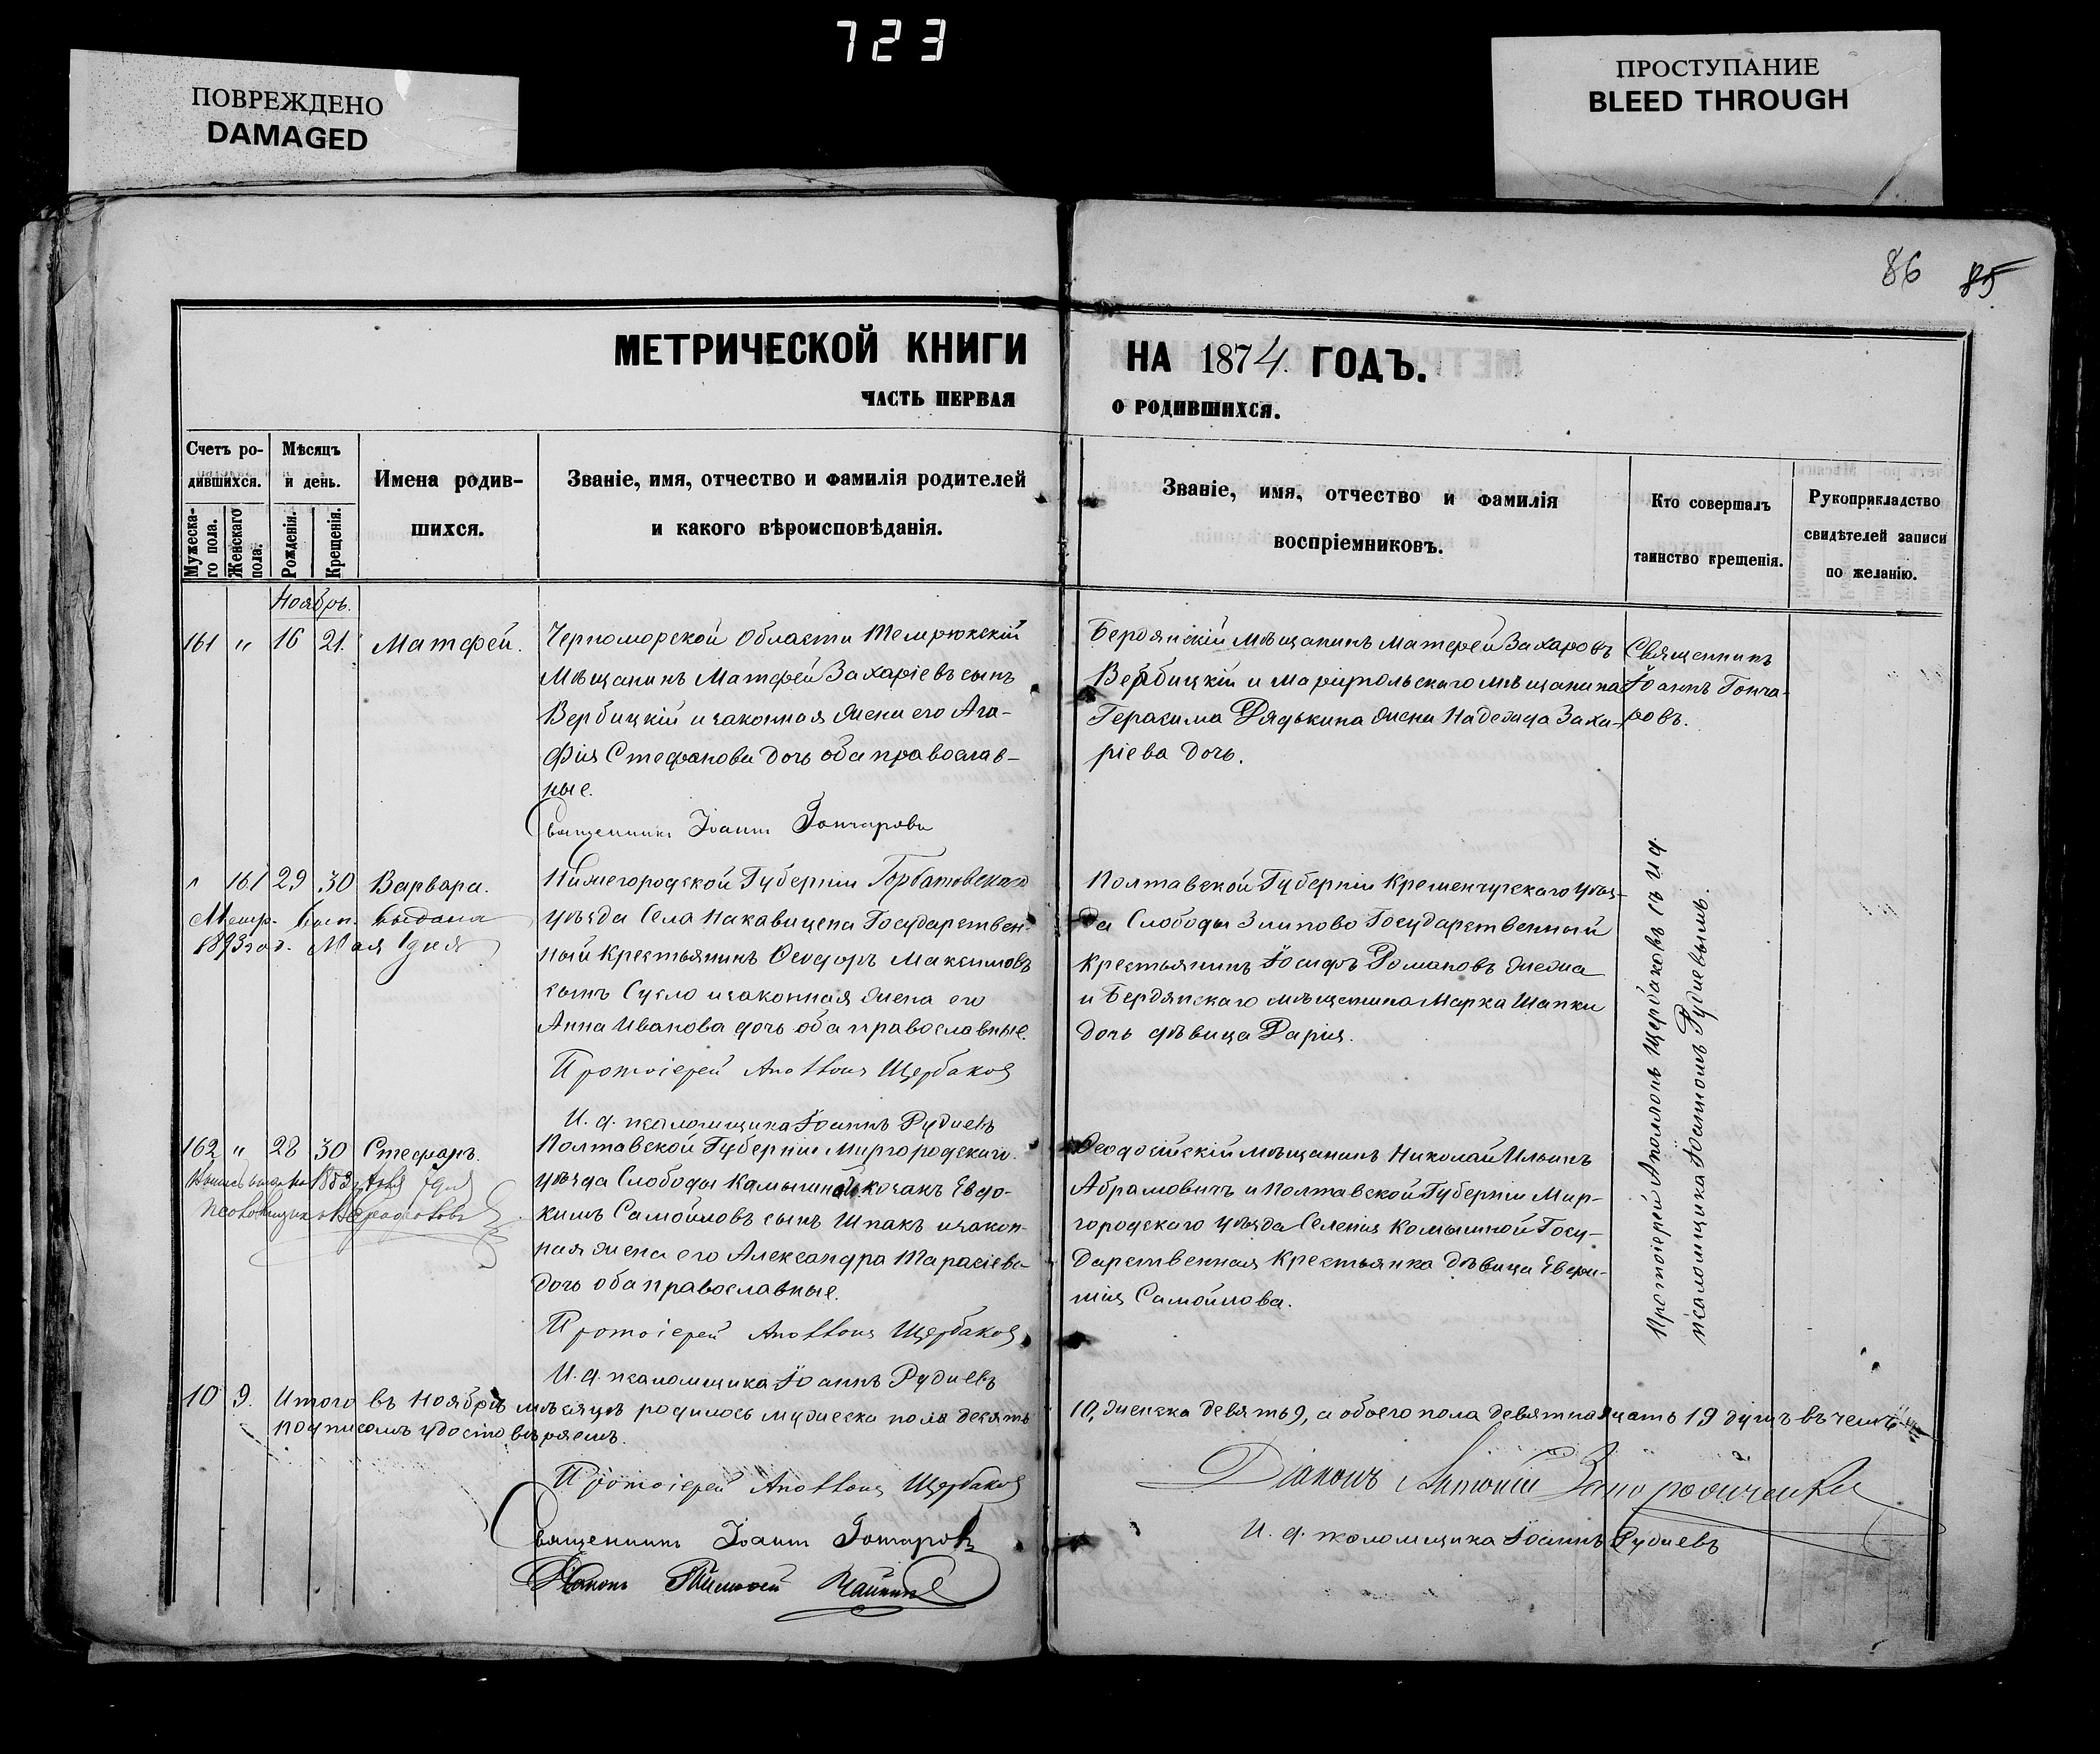 723
ПОВРЕЖДЕНО
DAMAGED
ПРОСТУПАНИЕ
BLEED THROUGH
86 85
МЕТРИЧЕСКОЙ КНИГИ
НА 1874. ГОДЪ.
ЧАСТЬ ПЕРВАЯ
О РОДИВШИХСЯ.
Счетъ ро-
дившихся.
Мужеска-
го пола.
Женскаго
пола.
Мѣсяцъ
и день.
Рожденія.
Крещенія.
Имена родив-
шихся.
Званіе, имя, отчество и фамилія родителей
и какого вѣроисповѣданія.
Званіе, имя, отчество и фамилія
воспріемниковъ.
Кто совершалъ
таинство крещенія.
Рукоприкладство
свидѣтелей записи
по желанію.
Ноябрь.
161 " 16 21. Матфей.
Черноморской Области Темрюкскій
Мѣщанинъ Матфей Захаріевъ сынъ
Вербицкій и законная жена его Ага-
фія Стефанова дочь оба православ-
ные.
Священникъ Іоаннъ Гончаровъ
Бердянскій мѣщанинъ Матфей Захаровъ
Вербицкій и маріупольскаго мѣщанина
Герасима Рядькина жена Надежда Заха-
ріева дочь.
Священникъ
Іоаннъ Гонча-
ровъ.
" 161 29 30 Варвара.
Метр. вып. выдана
1893 год. Мая 1 дня
Нижегородской Губерніи Горбатовскаго
уѣзда Села Государствен-
ный Крестьянинъ Ѳеодоръ Максимовъ
сынъ Сусло и законная жена его
Анна Иванова дочь оба православные.
Протоіерей Аполлонъ Щербаковъ
И. д. псаломщика Іоаннъ Рудневъ
Полтавской Губерніи Кременчугскаго уѣз-
да Слободы Государственный
крестьянинъ Іосифъ Романовъ
и Бердянскаго мѣщанина Марка Шапки
дочь дѣвица Дарія.
Протоіерей Аполлонъ Щербаковъ съ и д.
псаломщика Іоанномъ Рудневымъ.
162 " 28 30 Стефанъ.
Полтавской Губерніи Миргородскаго
уѣзда Слободы Камышной козакъ Евдо-
кимъ Самойловъ сынъ Шпакъ и закон-
ная жена его Александра Тарасіева
дочь оба православные.
Протоіерей Аполлонъ Щербаковъ
И. д. псаломщика Іоаннъ Рудневъ
Ѳеодосійскій мѣщанинъ Николай Ильинъ
Абрамовичъ и Полтавской Губерніи Мир-
городскаго уѣзда Селенія Комышной Госу-
дарственная Крестьянка дѣвица Евфи-
мія Самойлова.
10 9. Итого въ Ноябрѣ мѣсяцѣ родилось мужеска пола десять
10, женска девять 9, а обоего пола девятнадцать 19 душъ въ чемъ
подписомъ удостовѣряемъ.
Протоіерей Аполлонъ Щербаковъ
Священникъ Іоаннъ Гончаровъ
Діаконъ
Діаконъ Антоній
И. д. псаломщика Іоаннъ Рудневъ